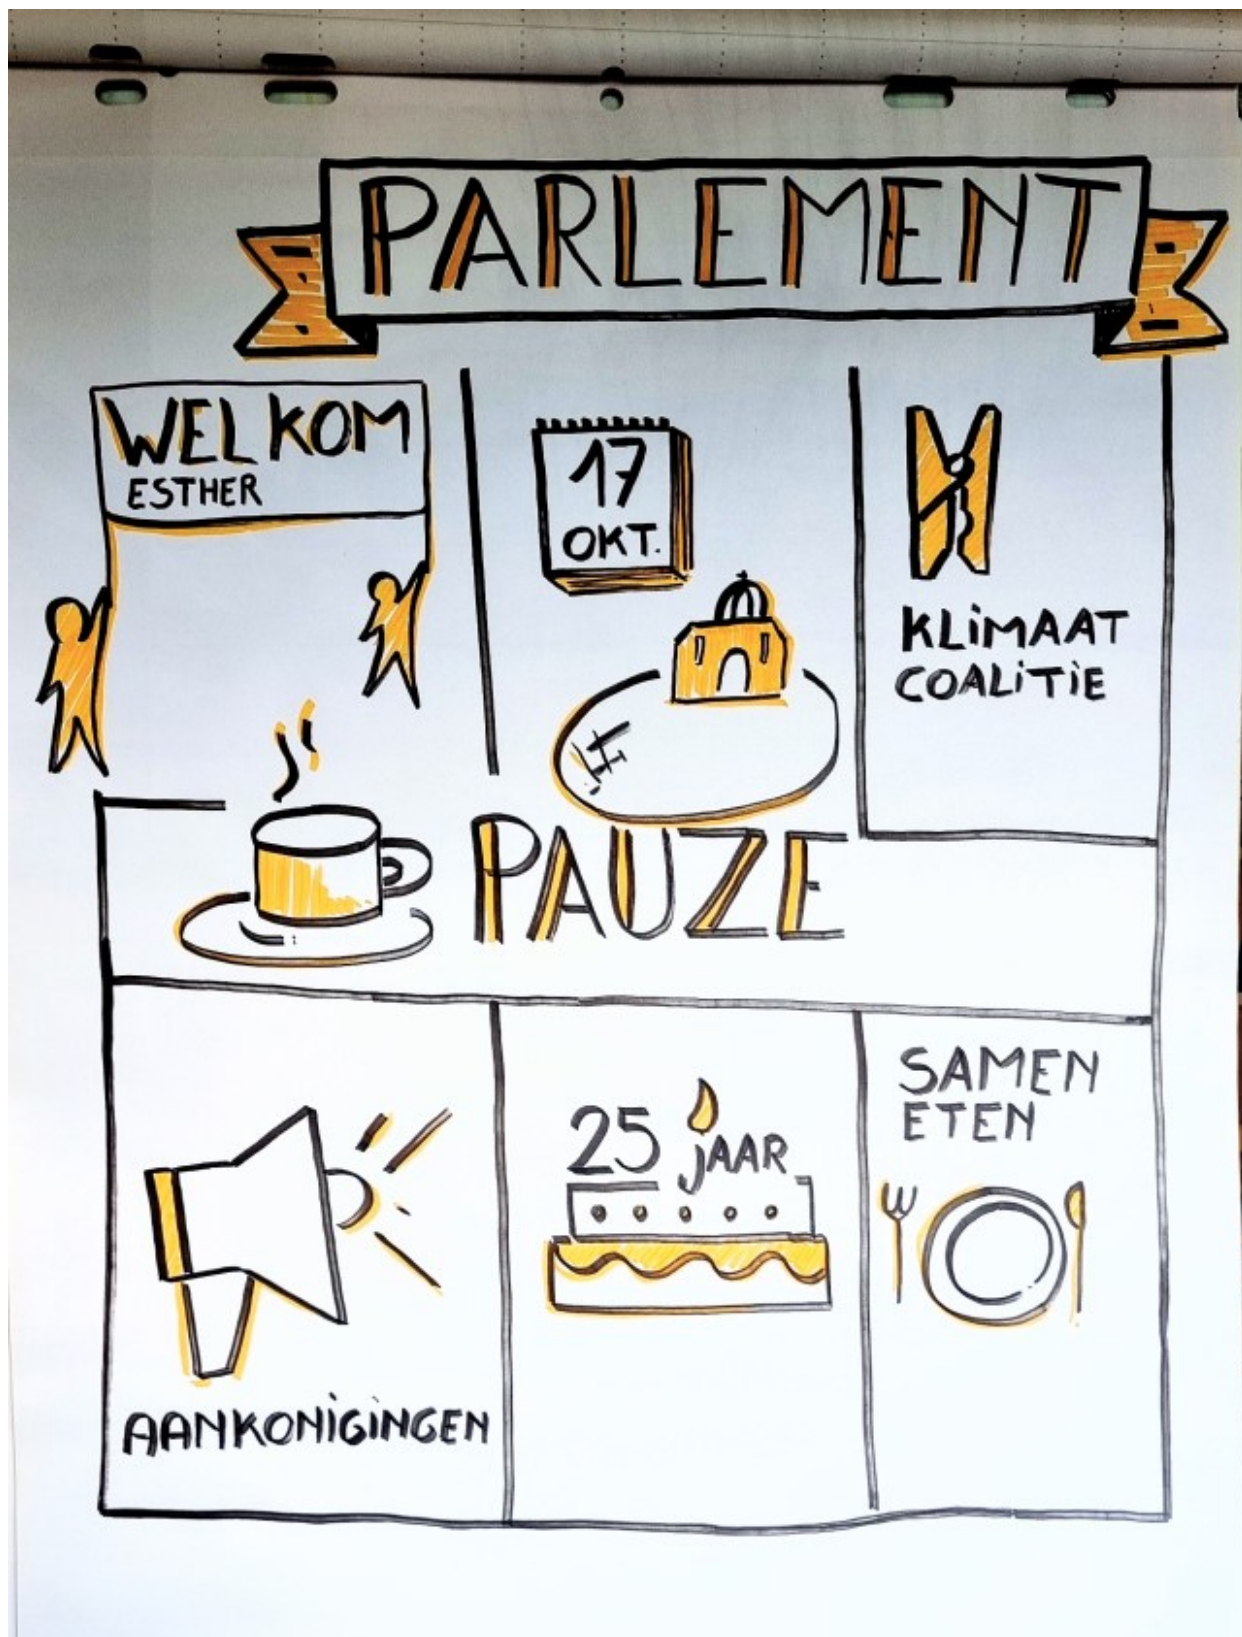 PARLEMENT
WELKOM
ESTHER
17
OKT.
KLiMAAT
COALiTiE
PAUZE
AANKONiGiNGEN
25 jAAR
SAMEN
ETEN